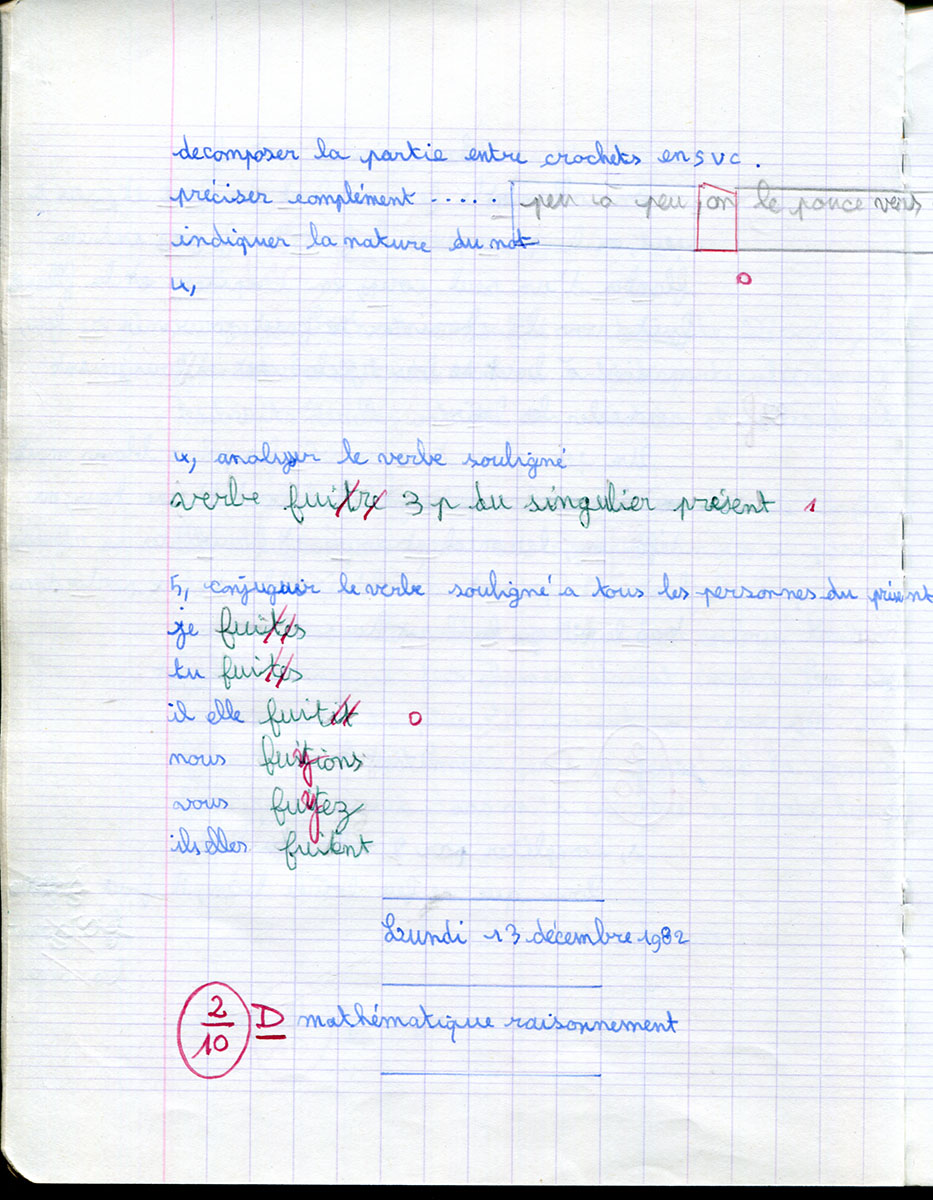 decomposer la partie entre crochets en svc.
préciser complément ..... peu à peu on le pouce vers
indiquer la nature du mot
4,
0
4, analyser le verbe souligné
verbe fuitre 3 p du singulier présent 1
5, conjuguer le verbe souligné a tous les personnes du présent
je fuites
tu fuites
il elle fuitit 0
nous
vous
ils elles fuient
Lundi 13 décembre 1982
2/10 D mathématique raisonnement